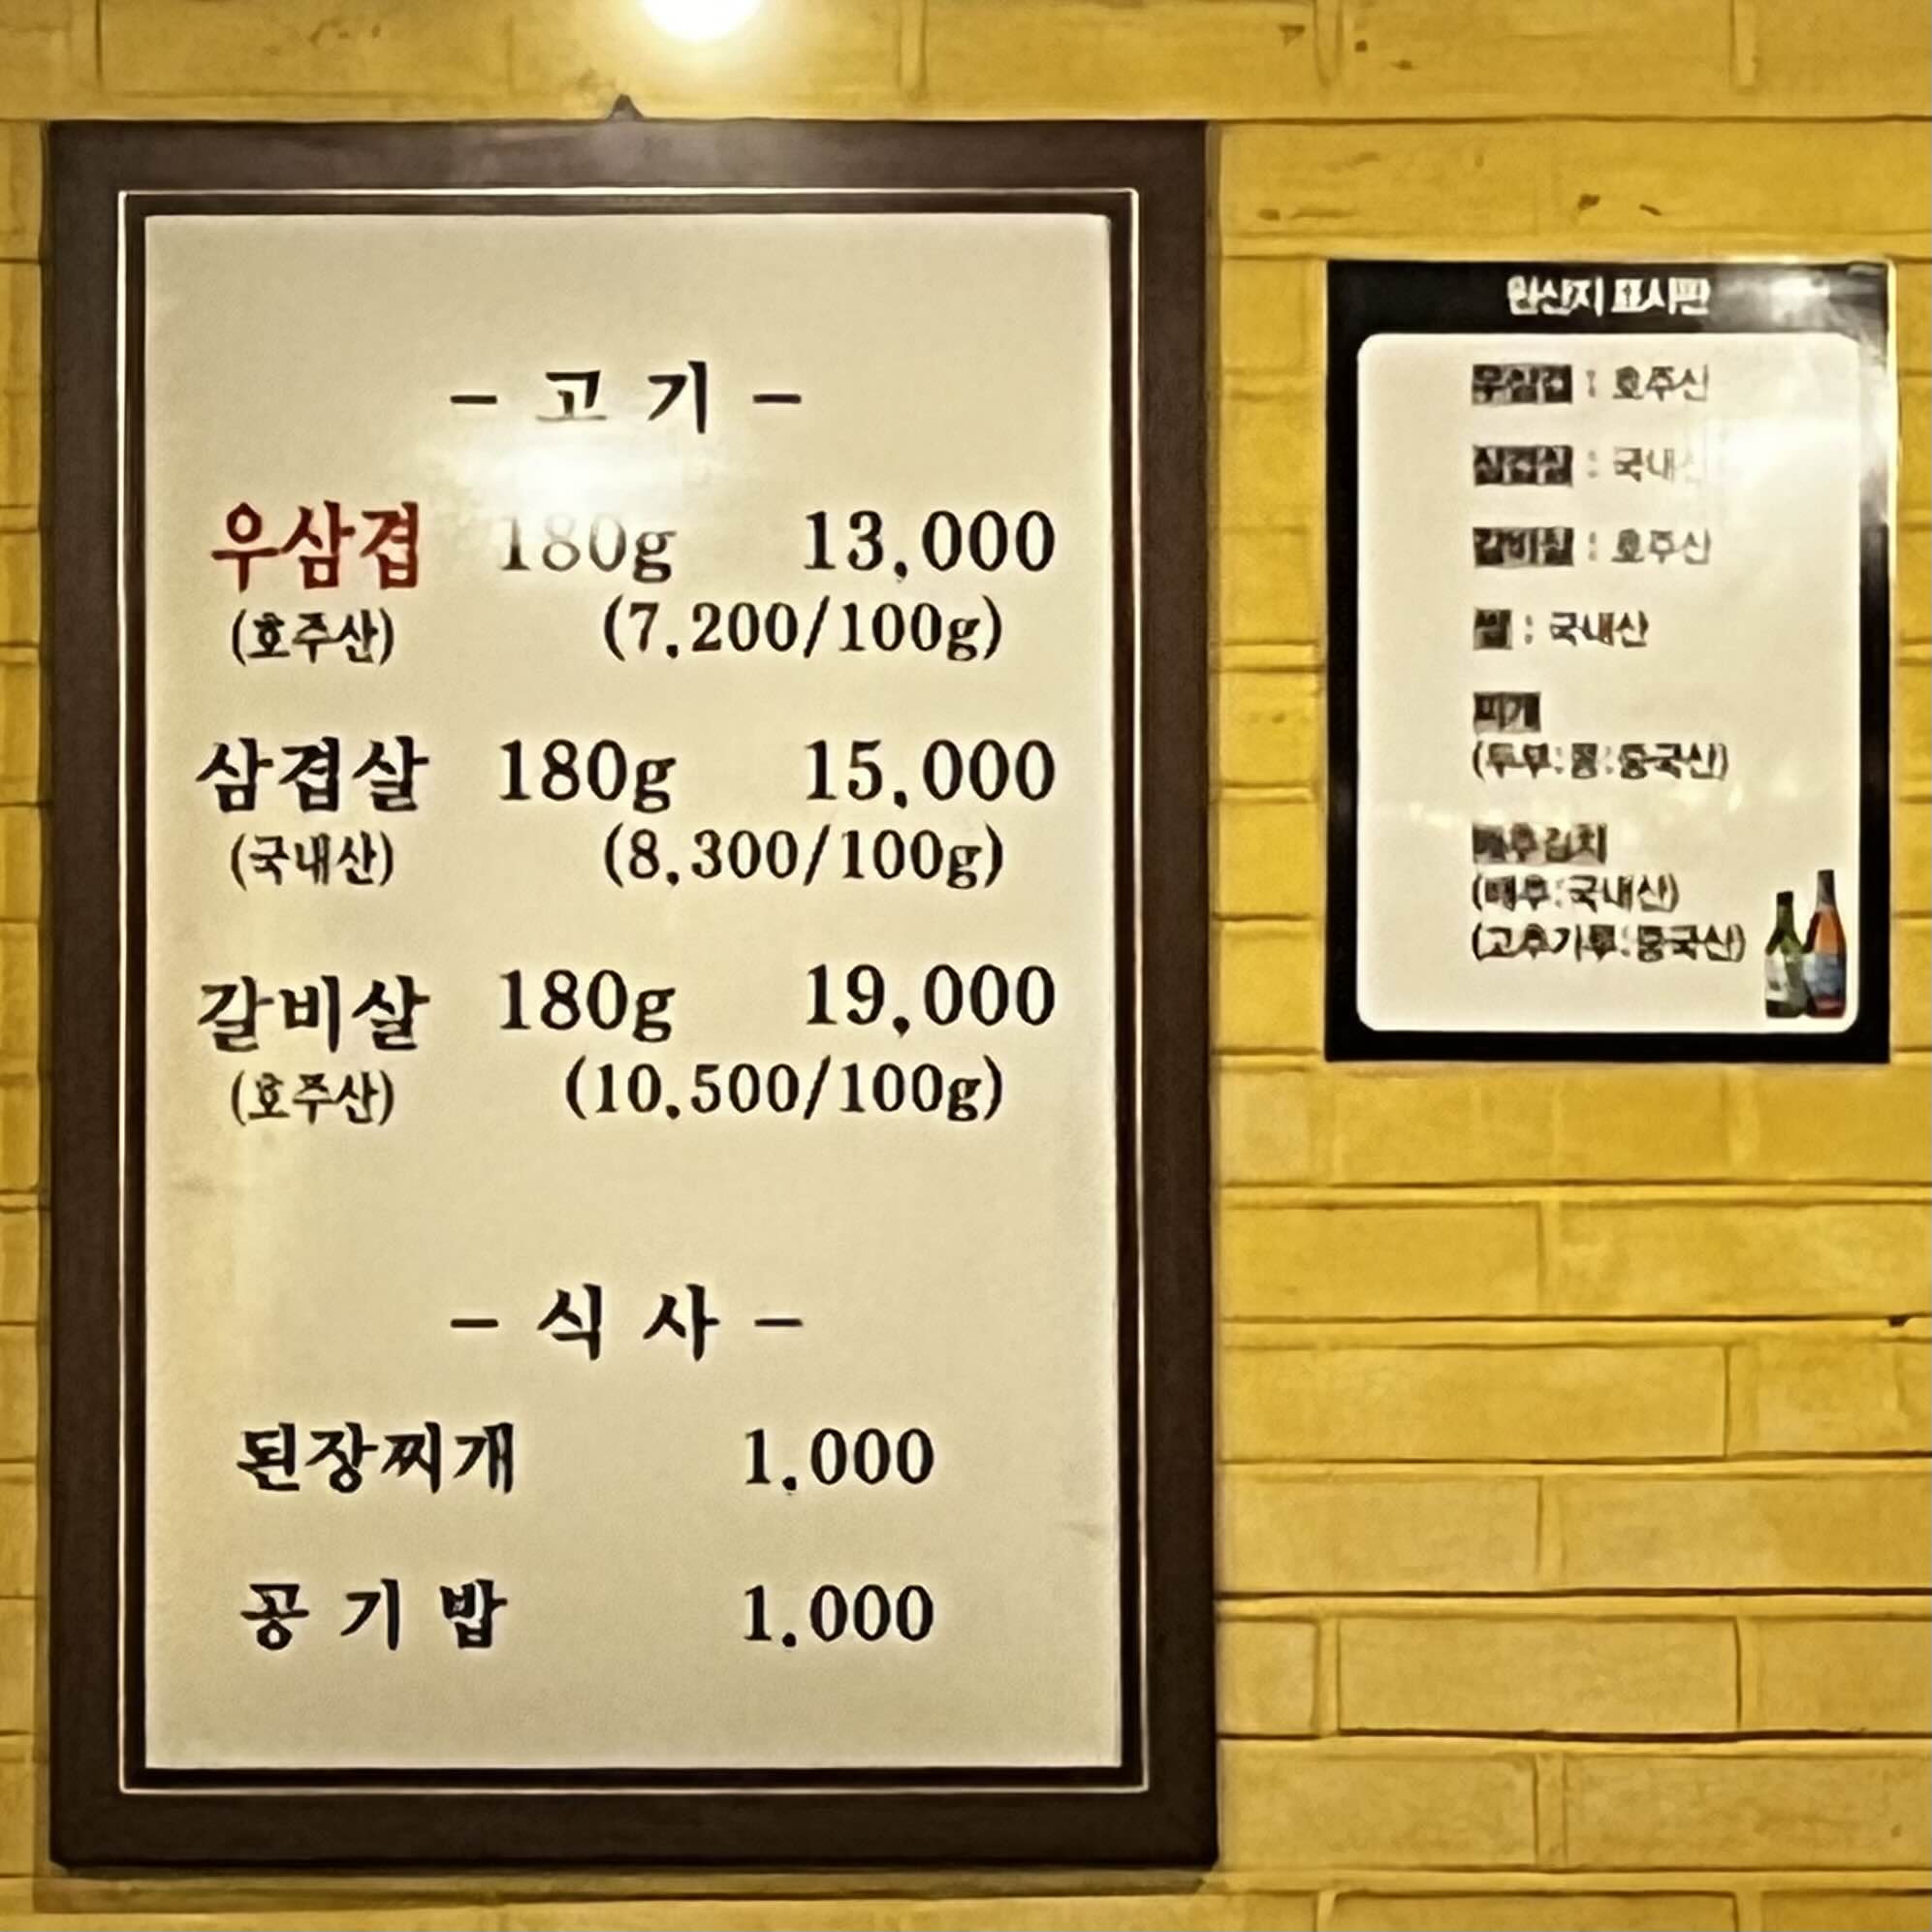 - 고 기 -
우삼겹 180g 13,000
(호주산) (7,200/100g)
삼겹살 180g 15,000
(국내산) (8,300/100g)
갈비살 180g 19,000
(호주산) (10,500/100g)
- 식 사 -
된장찌개 1,000
공 기 밥 1,000
원산지 표시판
우삼겹 : 호주산
삼겹살 : 국내산
갈비살 : 호주산
쌀 : 국내산
찌개
(두부:콩:중국산)
배추김치
(배추:국내산)
(고추가루:중국산)